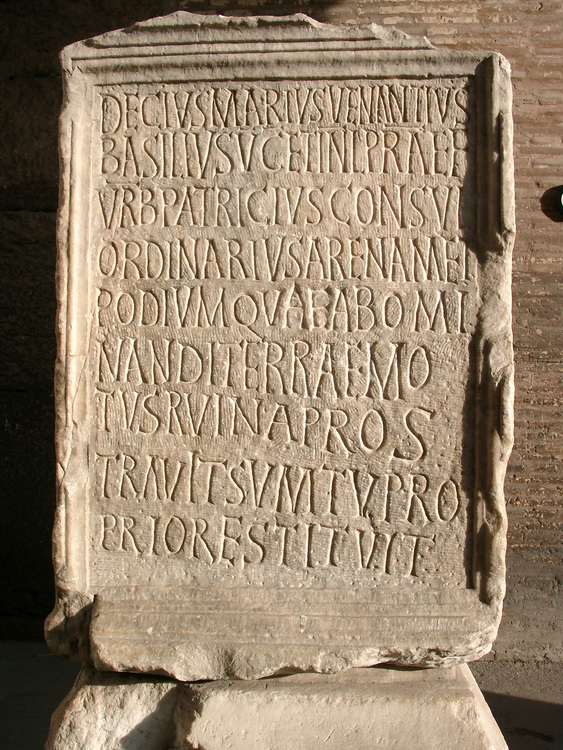 DECIVSMARIVSVENANTIVS
BASILIVSVCETINLPRAEF
VRBPATRICIVSCONSVL
ORDINARIVSARENAMET
PODIVMQVAEABOMI
NANDITERRAEMO
TVSRVINAPROS
TRAVITSVMTVPRO
PRIORESTITVIT